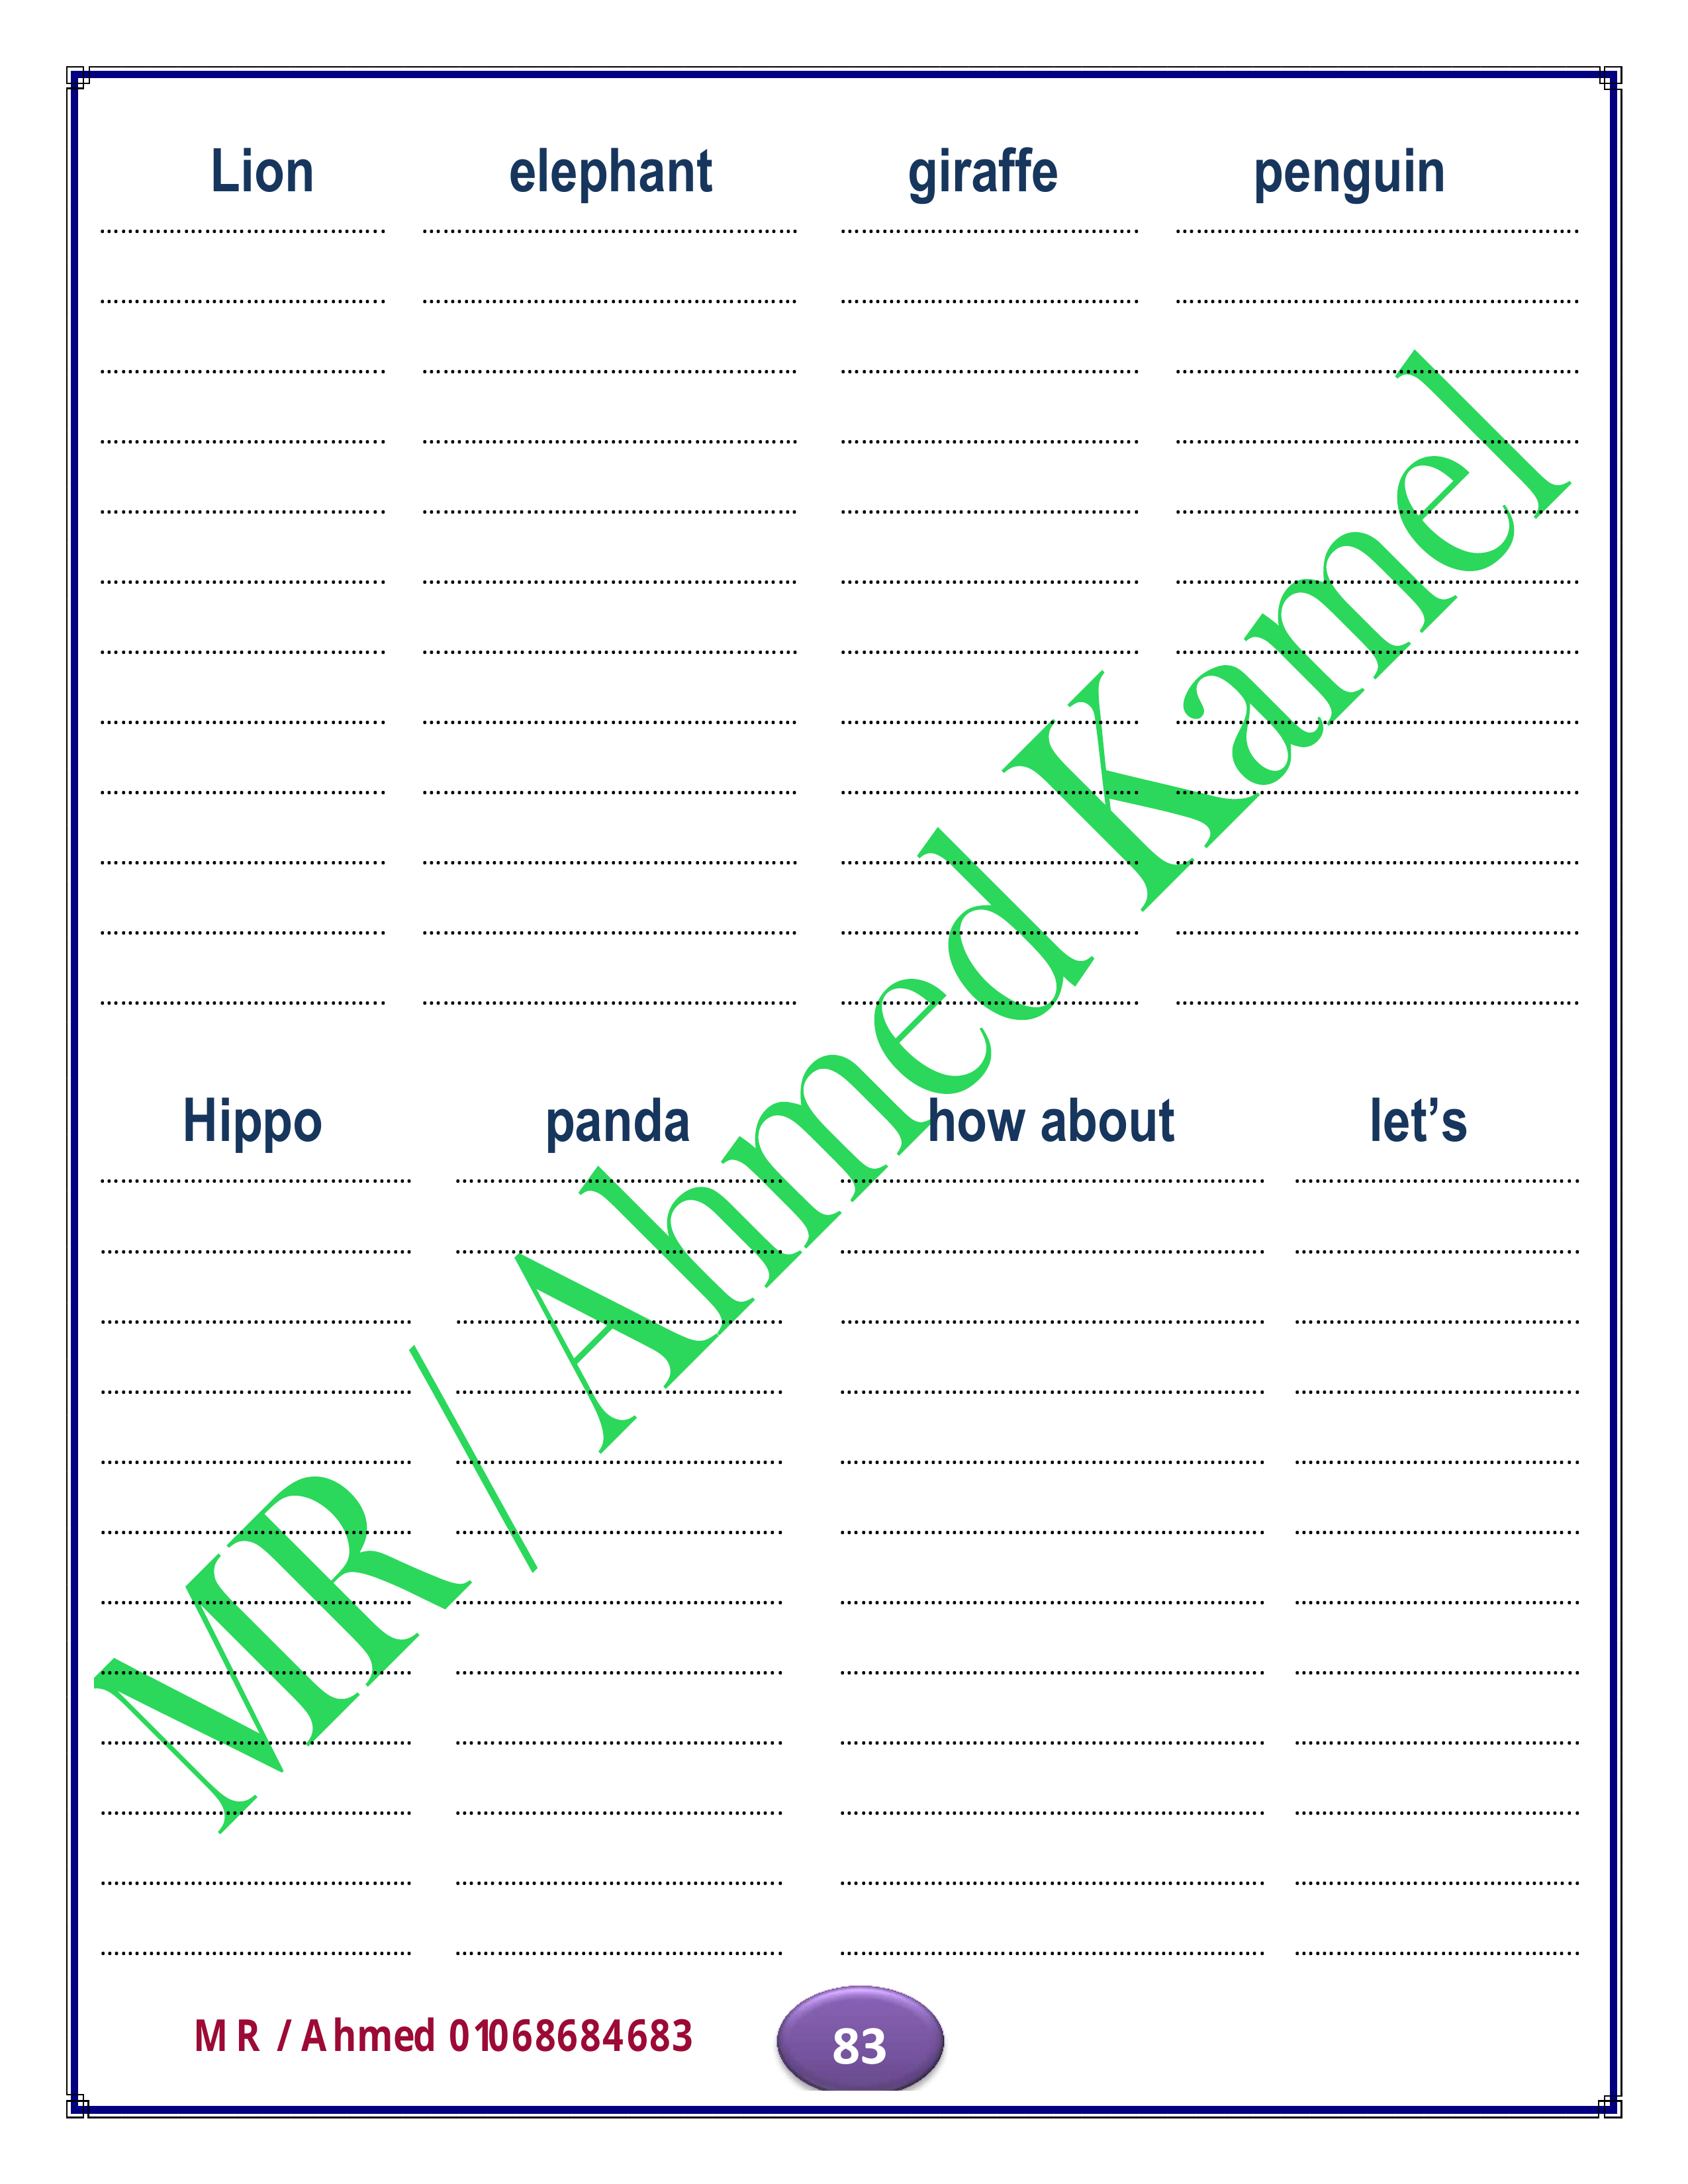 Lion elephant giraffe penguin
Hippo panda how about let’s
MR / Ahmed Kamel
MR / Ahmed 01068684683
83